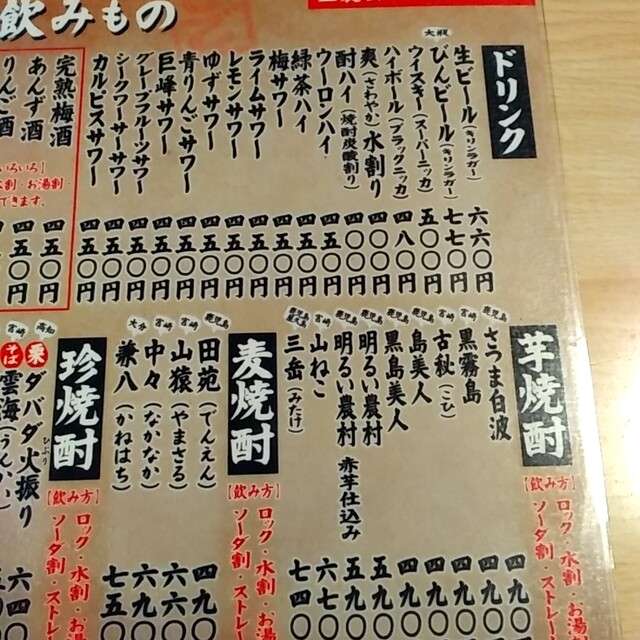 飲みもの
ドリンク
生ビール(キリンラガー) 六六〇円
大瓶
びんビール(キリンラガー) 七七〇円
ウイスキー(スーパーニッカ) 五〇〇円
ハイボール(ブラックニッカ) 四八〇円
爽(さわやか)水割り 四〇〇円
酎ハイ(焼酎炭酸割り) 四〇〇円
ウーロンハイ 四五〇円
緑茶ハイ 四五〇円
梅サワー 四五〇円
ライムサワー 四五〇円
レモンサワー 四五〇円
ゆずサワー 四五〇円
青りんごサワー 四五〇円
巨峰サワー 四五〇円
グレープフルーツサワー 四五〇円
シークワーサーサワー 四五〇円
カルピスサワー 四五〇円
完熟梅酒 四五〇円
あんず酒 四五〇円
りんご酒
芋焼酎
【飲み方】
ロック・水割・お湯
ソーダ割・ストレー
さつま白波 四九
宮崎 黒霧島 四九
宮崎 古秘(こひ) 四九
鹿児島 島美人 四九
鹿児島 黒島美人 四九
鹿児島 明るい農村 五九
鹿児島 明るい農村 赤芋仕込み 五九
宮崎 山ねこ 六七
三岳(みたけ) 七四
麦焼酎
【飲み方】
ロック・水割・お湯
ソーダ割・ストレー
鹿児島 田苑(でんえん) 四九
宮崎 山猿(やまさる) 六六
宮崎 中々(なかなか) 六九
大分 兼八(かねはち) 七五
珍焼酎
【飲み方】
ロック・水割・お湯
ソーダ割・ストレ
高知 栗 ダバダ火振りひぶり 六四
宮崎 そば 雲海(うんかい)